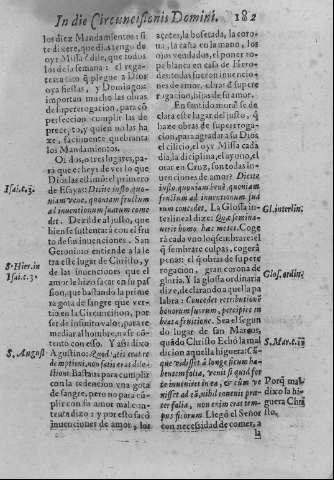 In die Circuncisionis Domini. 182
los diez Mandamientos: si
te dixere, que dias tengo de
oyr Missa? dile, que todos
los de la semana: el rega-
teara con q̃ plegue a Dios
oya fiestas, y Domingos:
importan mucho las obras
de superrogacion, para cõ
perfeccion cumplir las de
precepto, y quien no las ha
ze, facilmente quebranta
los Mandamientos.
Oi dos, o tres lugares, pa-
ra que echeys de ver lo que
Dios las estima: el primero
de Esayas: Dicite iusto, quo-
niam bene, quoniam fructum
ad inuentionum suarum come
det. Dezilde al justo, que
bien se sustentarà con el fru
to de sus inuenciones. San
Geronimo entiende a la le
tra este lugar de Christo, y
de las inuenciones que el
amor le hizo sacar en su pas
sion, que bastando la prime
ra gota de sangre que ver-
tio en la Circuncision, por
ser de infinito valor, para re
mediar al hombre, no se cõ-
tento con esso. Y assi dixo
Agustino: Quod satis erat re
demptioni, non satis erat dile-
ctioni. Bastaua para cumplir
con la redencion vna gota
de sangre, pero no para cũ-
plir con su amor mal con-
tentadizo: y por esto sacò
inuenciones de amor, los
açotes, la bofetada, la coro-
na, la caña en la mano, los
ojos vendados, el poner ro-
pa blanca en casa de Hero-
des todas fueron inuencio-
nes de amor, obras de super
rogacion, hijas de su amor.
En sentido moral se de
clara este lugar del justo, q̃
haze obras de superroga-
cion, para agradar a su Dios
el cilicio, el oyr Missa cada
dia, la diciplina, el ayuno, el
orar en Cruz, son todas in-
uenciones de amor? Dicite
iusto, quoniam bene, quoniam
fructum ad inuentionum sua
rum comedet. La Glossa in-
terlineal dize: Quæ semina-
uerit homo, hæc metet. Coge
rà cada vno lo q̃ sembrare: el
q̃ sembrare culpas, cogerà
penas: el q̃ obras de super
rogacion, gran corona de
gloria. Y la glossa ordinaria
dize, declarando aquella pa
labra: Comedet retributionẽ
bonorum suorum, percipiet in
beata fruitione. Sea el segun
do lugar de san Marcos,
quãdo Christo Echò la mal
dicion aquella higuera: Cũ-
que vidisset à longe ficum ha-
bentem folia, venit si quid for
te inueniret in ea, & cùm ve
nisset ad eã, nihil inuenit præ-
ter folia, non enim erat tem-
pus ficorum. Llegò el Señor
con necessidad de comer, a
la
Isai. c. 3.
S. Hier. in
Isai. c. 3.
S. August
Gl. interlin.
Glos. ordin.
S. Mar. c. 11
Porq̃ mal-
dixo la hi-
guera Chri
sto.